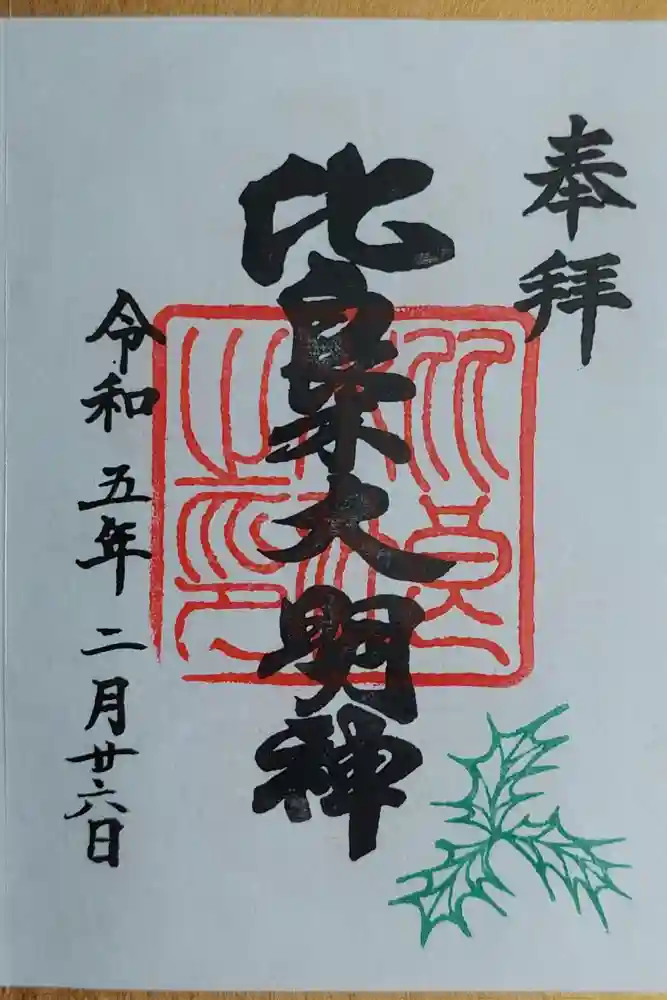 奉拝
比良木大明神
令和五年二月廿六日